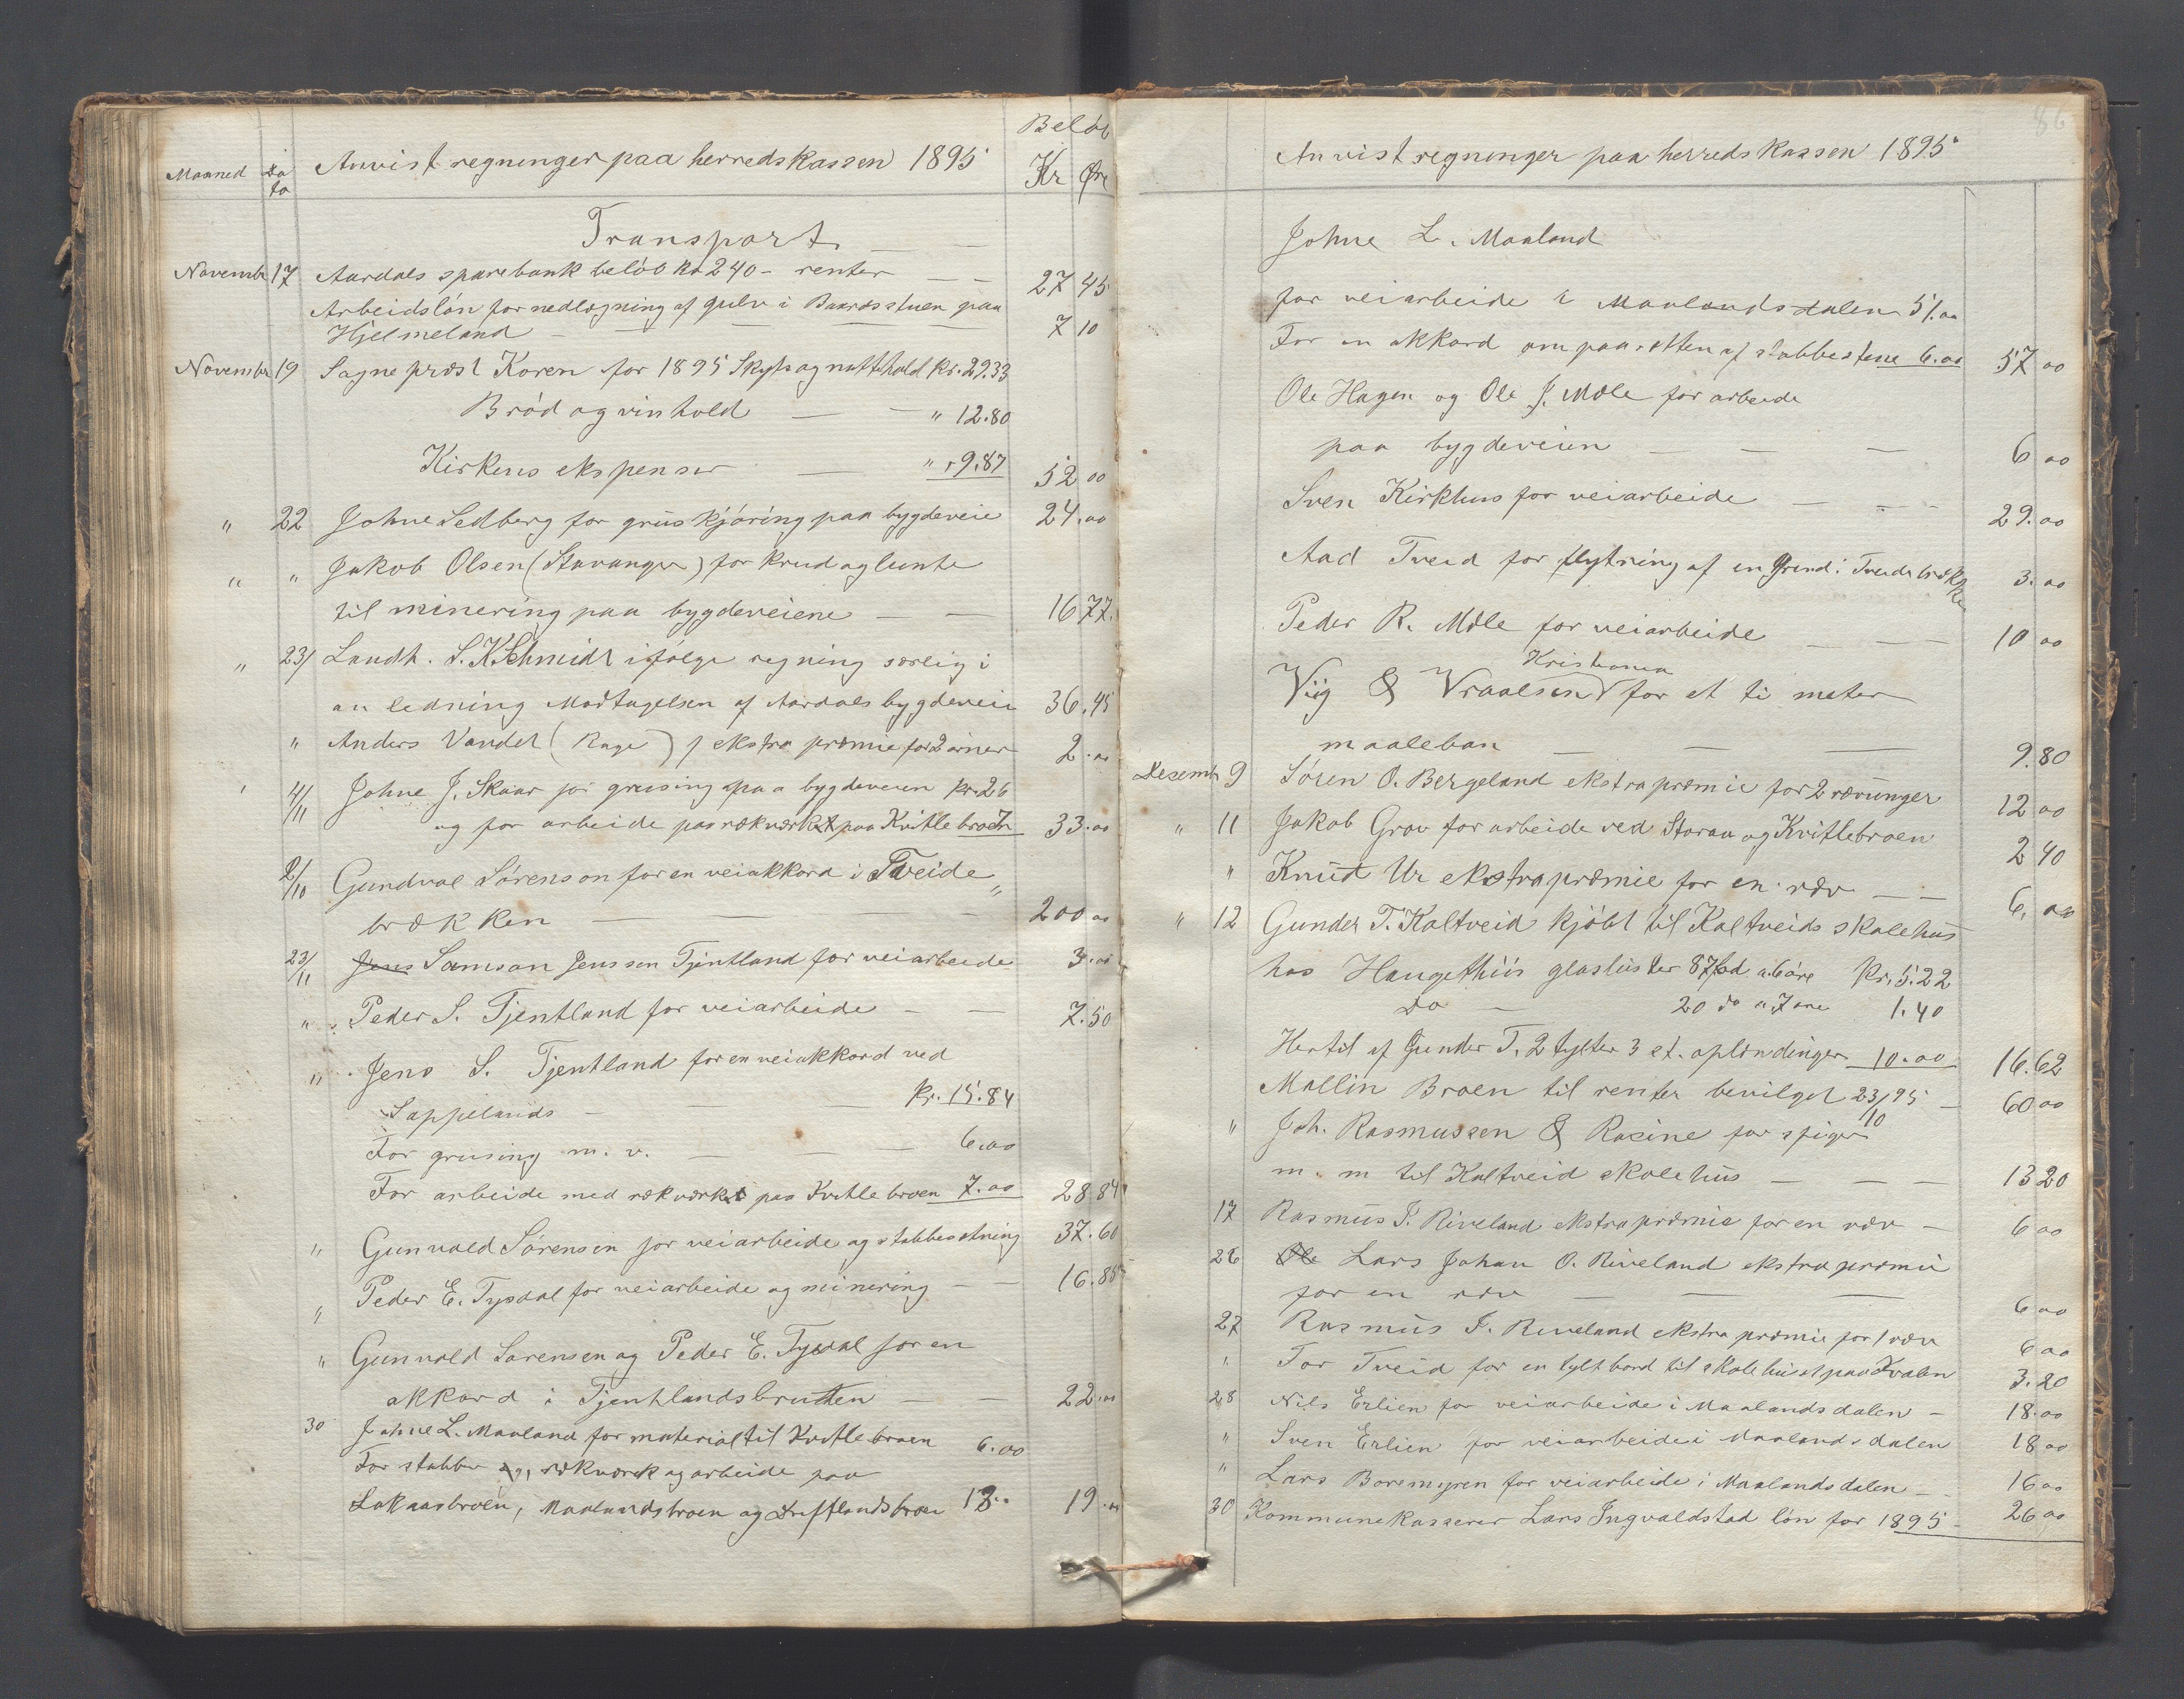 Beløb
Maaned Da to Anvist regninger paa herredskassen 1895 Kr Øre
Transport — —
Novembr 17 Aardals sparebank beløb kr 240 - renter — — 27 45
Arbeidsløn for nedlægning af gulv i Baarasstuen paa
Hjelmeland — — — 7 10
November 19 Sogneprest Koren for 1895 Skyds og nattehold kr. 29.33
Brød og vinhold — — " 12.80
Kirkens ekspenser — " 9.87 52 00
" 22 Johne Sedberg for gruskjøring paa bygdeveie 24.00
" " Jakob Olsen (Stavanger) for krud og lunte
til minering paa bygdeveiene — — 16 77.
" 23/ Landh. S. K. Schmidt ifølge regning særlig i
anledning Modtagelsen af Aardals bygdeveie 36.45
" Anders Vandel ( Rage ) f ekstra præmie for 2 ørner 2.00
4/11 Johne J. Skaar for grusing paa bygdeveien kr. 26
og for arbeide paa rækværket paa Kvitlebroen 7 33.00
2/10 Gundval Sørenson for en veiakkord i Tveide
brækken — — — 200 00
23/11 Jens Samson Jensson Tjentland for veiarbeide 3.00
" Peder S. Tjentland for veiarbeide — — 7.50
" Jens S. Tjentland for en veiakkord ved
Sappelands — — — kr. 15.84
For grusing m. v. — — — 6.00
For arbeide med rækværket paa Kvitlebroen 7.00 28.84
" Gunvald Sørensen for veiarbeide og stabbesætning 37.60
" Peder E. Tysdal for veiarbeide og minering — — 16.88
" Gunvald Sørensen og Peder E. Tysdal for en
akkord i Tjentlandsbrutten — — 22.00
30 Johne L. Maaland for material til Kvitlebroen 6.00
For stabber og rækværk og arbeide paa
Lakaasbroen, Maalandsbroen og Driftlandsbroen 13.. 19.00
86
Anvist regninger paa herredskassen 1895
Johne L. Maaland
for veiarbeide i Maalandsdalen 51.00
For en akkord om paasætten af stabbestene 6.00 57 00
Ole Hagen og Ole J. Mæle for arbeide
paa bygdeveien — — — 6 00
Sven Kirkhus for veiarbeide — — - 29.00
Aad Tveid for flytning af en Grind i Tveidebrække 3.00
Peder R. Mæle for veiarbeide — — — 10 00
Kristiania
Viig & Vraalsen for et ti meter
maaleban — — — 9.80
Desembr 9 Søren O. Bergeland ekstrapræmie for 2 rævunger 12 00
" 11 Jakob Grov for arbeide ved Storaa og Kvitlebroen 2 40
" Knud Ur ekstrapræmie for en ræv — — 6. 00
" 12 Gunder T. Kaltveid kjøbt til Kaltveids skolehus
hos Haugethus glaslister 87 fod a 6 øre kr. 5.22
Do — 20 do a 7 øre 1.40
Hertil af Gunder T. 2 tylter 3 et. oplændinger 10.00 16.62
Mallin Broen til renter bevilget 23/10 95 — 60 00
" Joh. Rasmussen & Racine for spiger
m. m til Kaltveid skolehus — — — 13 20
17 Rasmus T. Riveland ekstrapræmie for en ræv — 6 00
26 Ole Lars Johan O. Riveland ekstrapræmie
for en ræv — — — 6 00
27 Rasmus T. Riveland ekstra præmie for 1 ræv 6 00
" Tor Tveid for en tylt bord til skolehuset paa Hvalen 3.20
28 Nils Erlien for veiarbeide i Maalandsdalen — 18.00
" Sven Erlien for veiarbeide i Maalandsdalen 18 00
" Lars Boremyren for veiarbeide i Maalandsdalen — 16 00
30 Kommunekasserer Lars Ingvaldstad løn for 1895 — 26 00